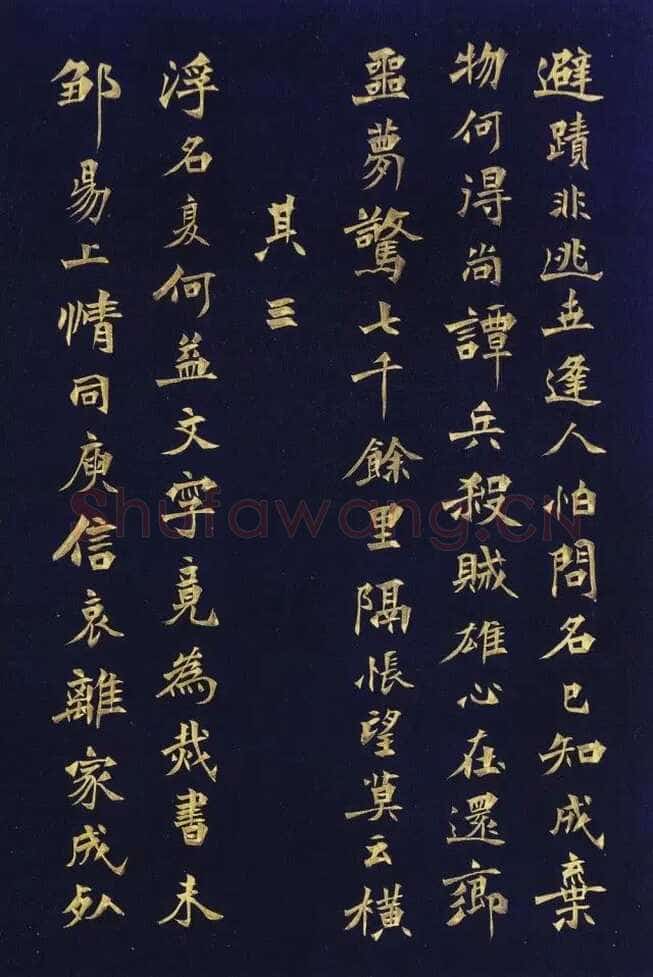 避蹟非逃世逢人怕問名已知成棄
物何得尚譚兵殺賊雄心在還鄉
噩夢驚七千餘里隔悵望莫云橫
其三
浮名复何益文字竟為烖書未
邹昜上情同庾信哀離家成死
Shufawang.CN